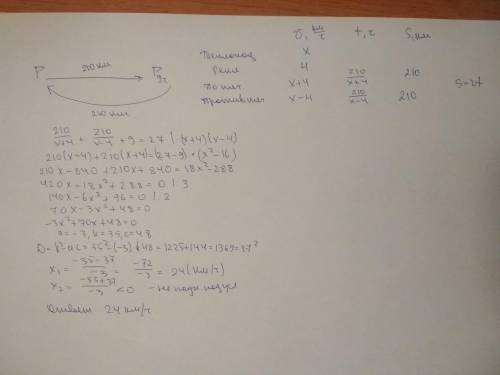 υ, км/ч t, ч S, км
Теплоход x
Река 4
По теч x+4 210/(x+4) 210
Против теч x-4 210/(x-4) 210
S=υt
P 210 км P
210 км
210/(x+4) + 210/(x-4) + 9 = 27 | ·(x+4)(x-4)
210(x-4)+210(x+4)=(27-9)·(x²-16)
210x-840+210x+840=18x²-288
420x-18x²+288=0 |:3
140x-6x²+96=0 |:2
70x-3x²+48=0
-3x²+70x+48=0
a=-3, k=35, c=48
D=k²-ac=35²-(-3)·48=1225+144=1369=37²
x₁ = (-35-37)/-3 = -72/-3 = 24 (км/ч)
x₂ = (-35+37)/-3 <0 -не подходит
Ответ: 24 км/ч